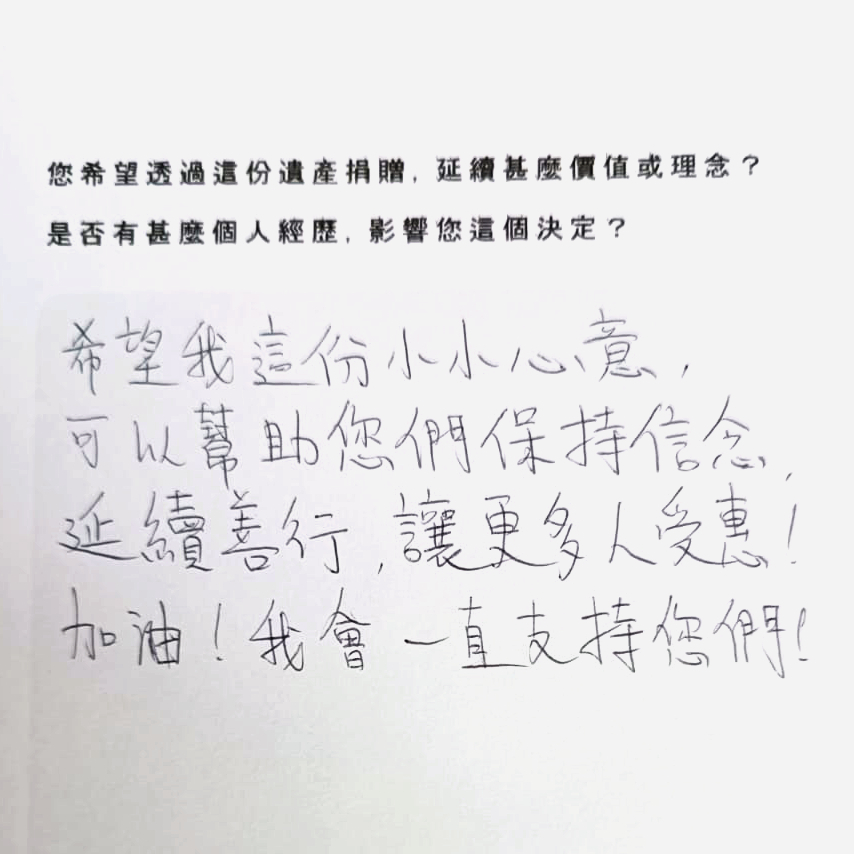 您希望透過這份遺產捐贈，延續甚麼價值或理念？
是否有甚麼個人經歷，影響您這個決定？
希望我這份小小心意，
可以幫助您們保持信念，
延續善行，讓更多人受惠！
加油！我會一直支持您們！